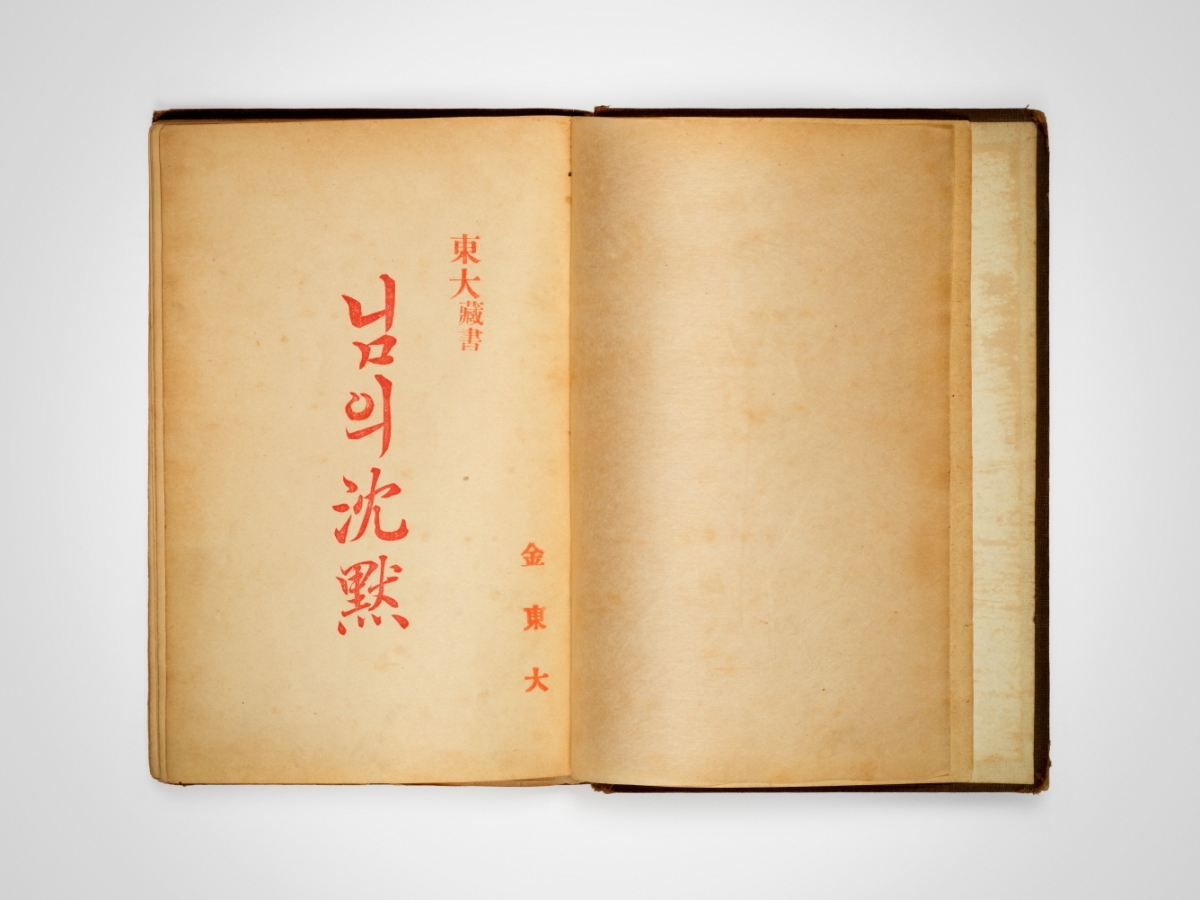 金東大
東大藏書
님의沈默